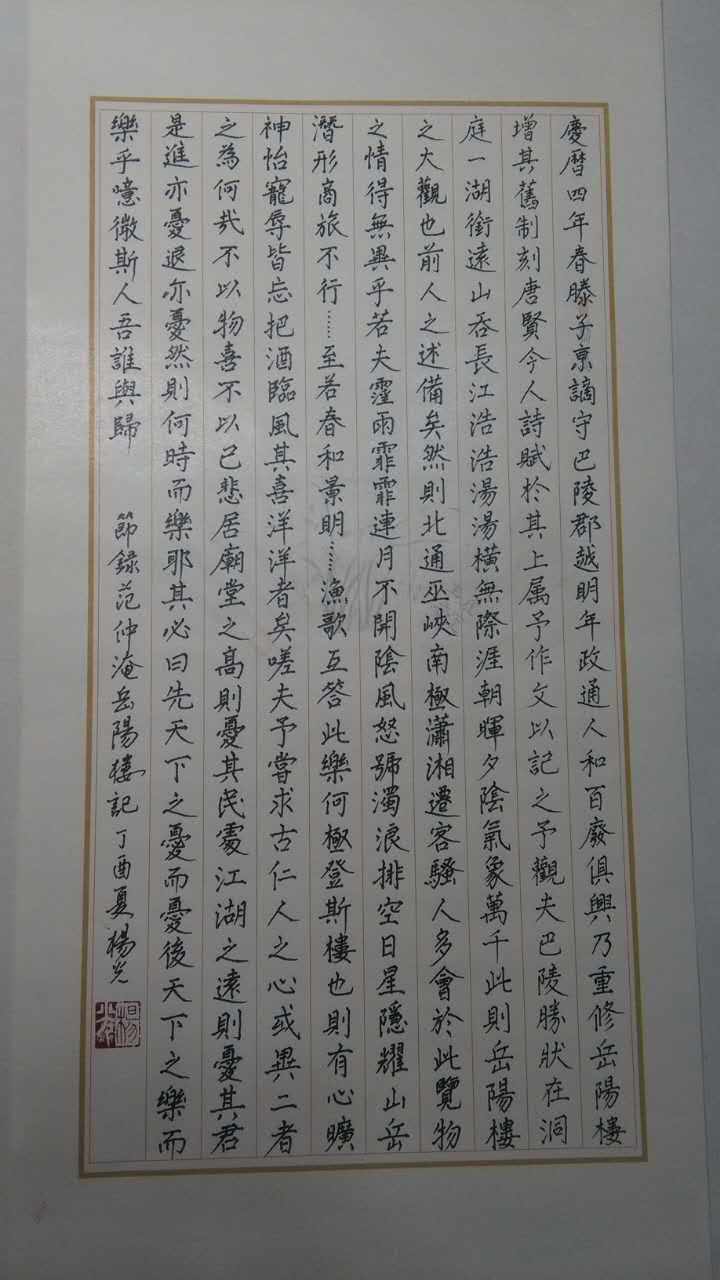 慶曆四年春滕子京謫守巴陵郡越明年政通人和百廢俱興乃重修岳陽樓
增其舊制刻唐賢今人詩賦於其上属予作文以記之予觀夫巴陵勝狀在洞
庭一湖銜遠山吞長江浩浩湯湯橫無際涯朝暉夕陰氣象萬千此則岳陽樓
之大觀也前人之述備矣然則北通巫峽南極瀟湘遷客騷人多會於此覽物
之情得無異乎若夫霪雨霏霏連月不開陰風怒號濁浪排空日星隱耀山岳
潛形商旅不行……至若春和景明……漁歌互答此樂何極登斯樓也則有心曠
神怡寵辱皆忘把酒臨風其喜洋洋者矣嗟夫予嘗求古仁人之心或異二者
之為何哉不以物喜不以己悲居廟堂之高則憂其民處江湖之遠則憂其君
是進亦憂退亦憂然則何時而樂耶其必曰先天下之憂而憂後天下之樂而
樂乎噫微斯人吾誰與歸 節錄范仲淹岳陽樓記丁酉夏楊光